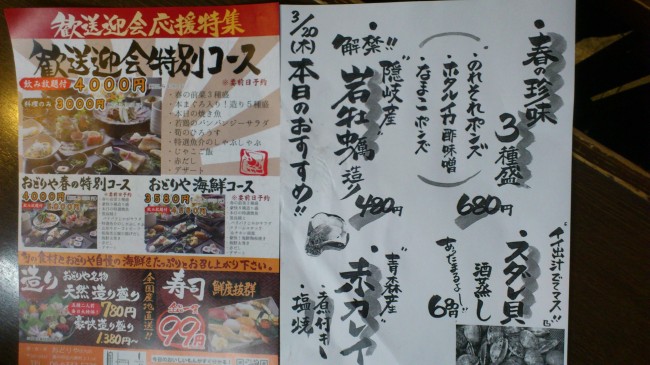 歓送迎会応援特集
歓送迎会特別コース
飲み放題付
4000円
※要前日予約
料理のみ
3000円
・春の前菜3種盛
・本まぐろ入り！造り5種盛
・本日の焼き魚
・若鶏のバンバンジーサラダ
・筍のひろうす
・特選魚介のしゃぶしゃぶ
・じゃこご飯
・赤だし
・デザート
おどりや春の特別コース
4000円
※要前日予約
おどりや海鮮コース
3580円
※要前日予約
旬の食材とおどりや自慢の海鮮をたっぷりと召し上がり下さい。
造り
おどりや名物
天然造り盛り
780円
豪快造り盛り
1,380円～
全国産地直送!!
寿司
鮮度抜群
99円
3/20(木)
本日のおすすめ!!
解禁!!
隠岐産
岩牡蠣
造り
480円
・春の珍味
3種盛
680円
・のれそれポンズ
・ホタルイカ酢味噌
・なまこポンズ
青森産
・赤ガレイ
・煮付き
・塩焼
イイ出汁でてマス!!
・スダレ貝
酒蒸し
あったまるよし!!
680円